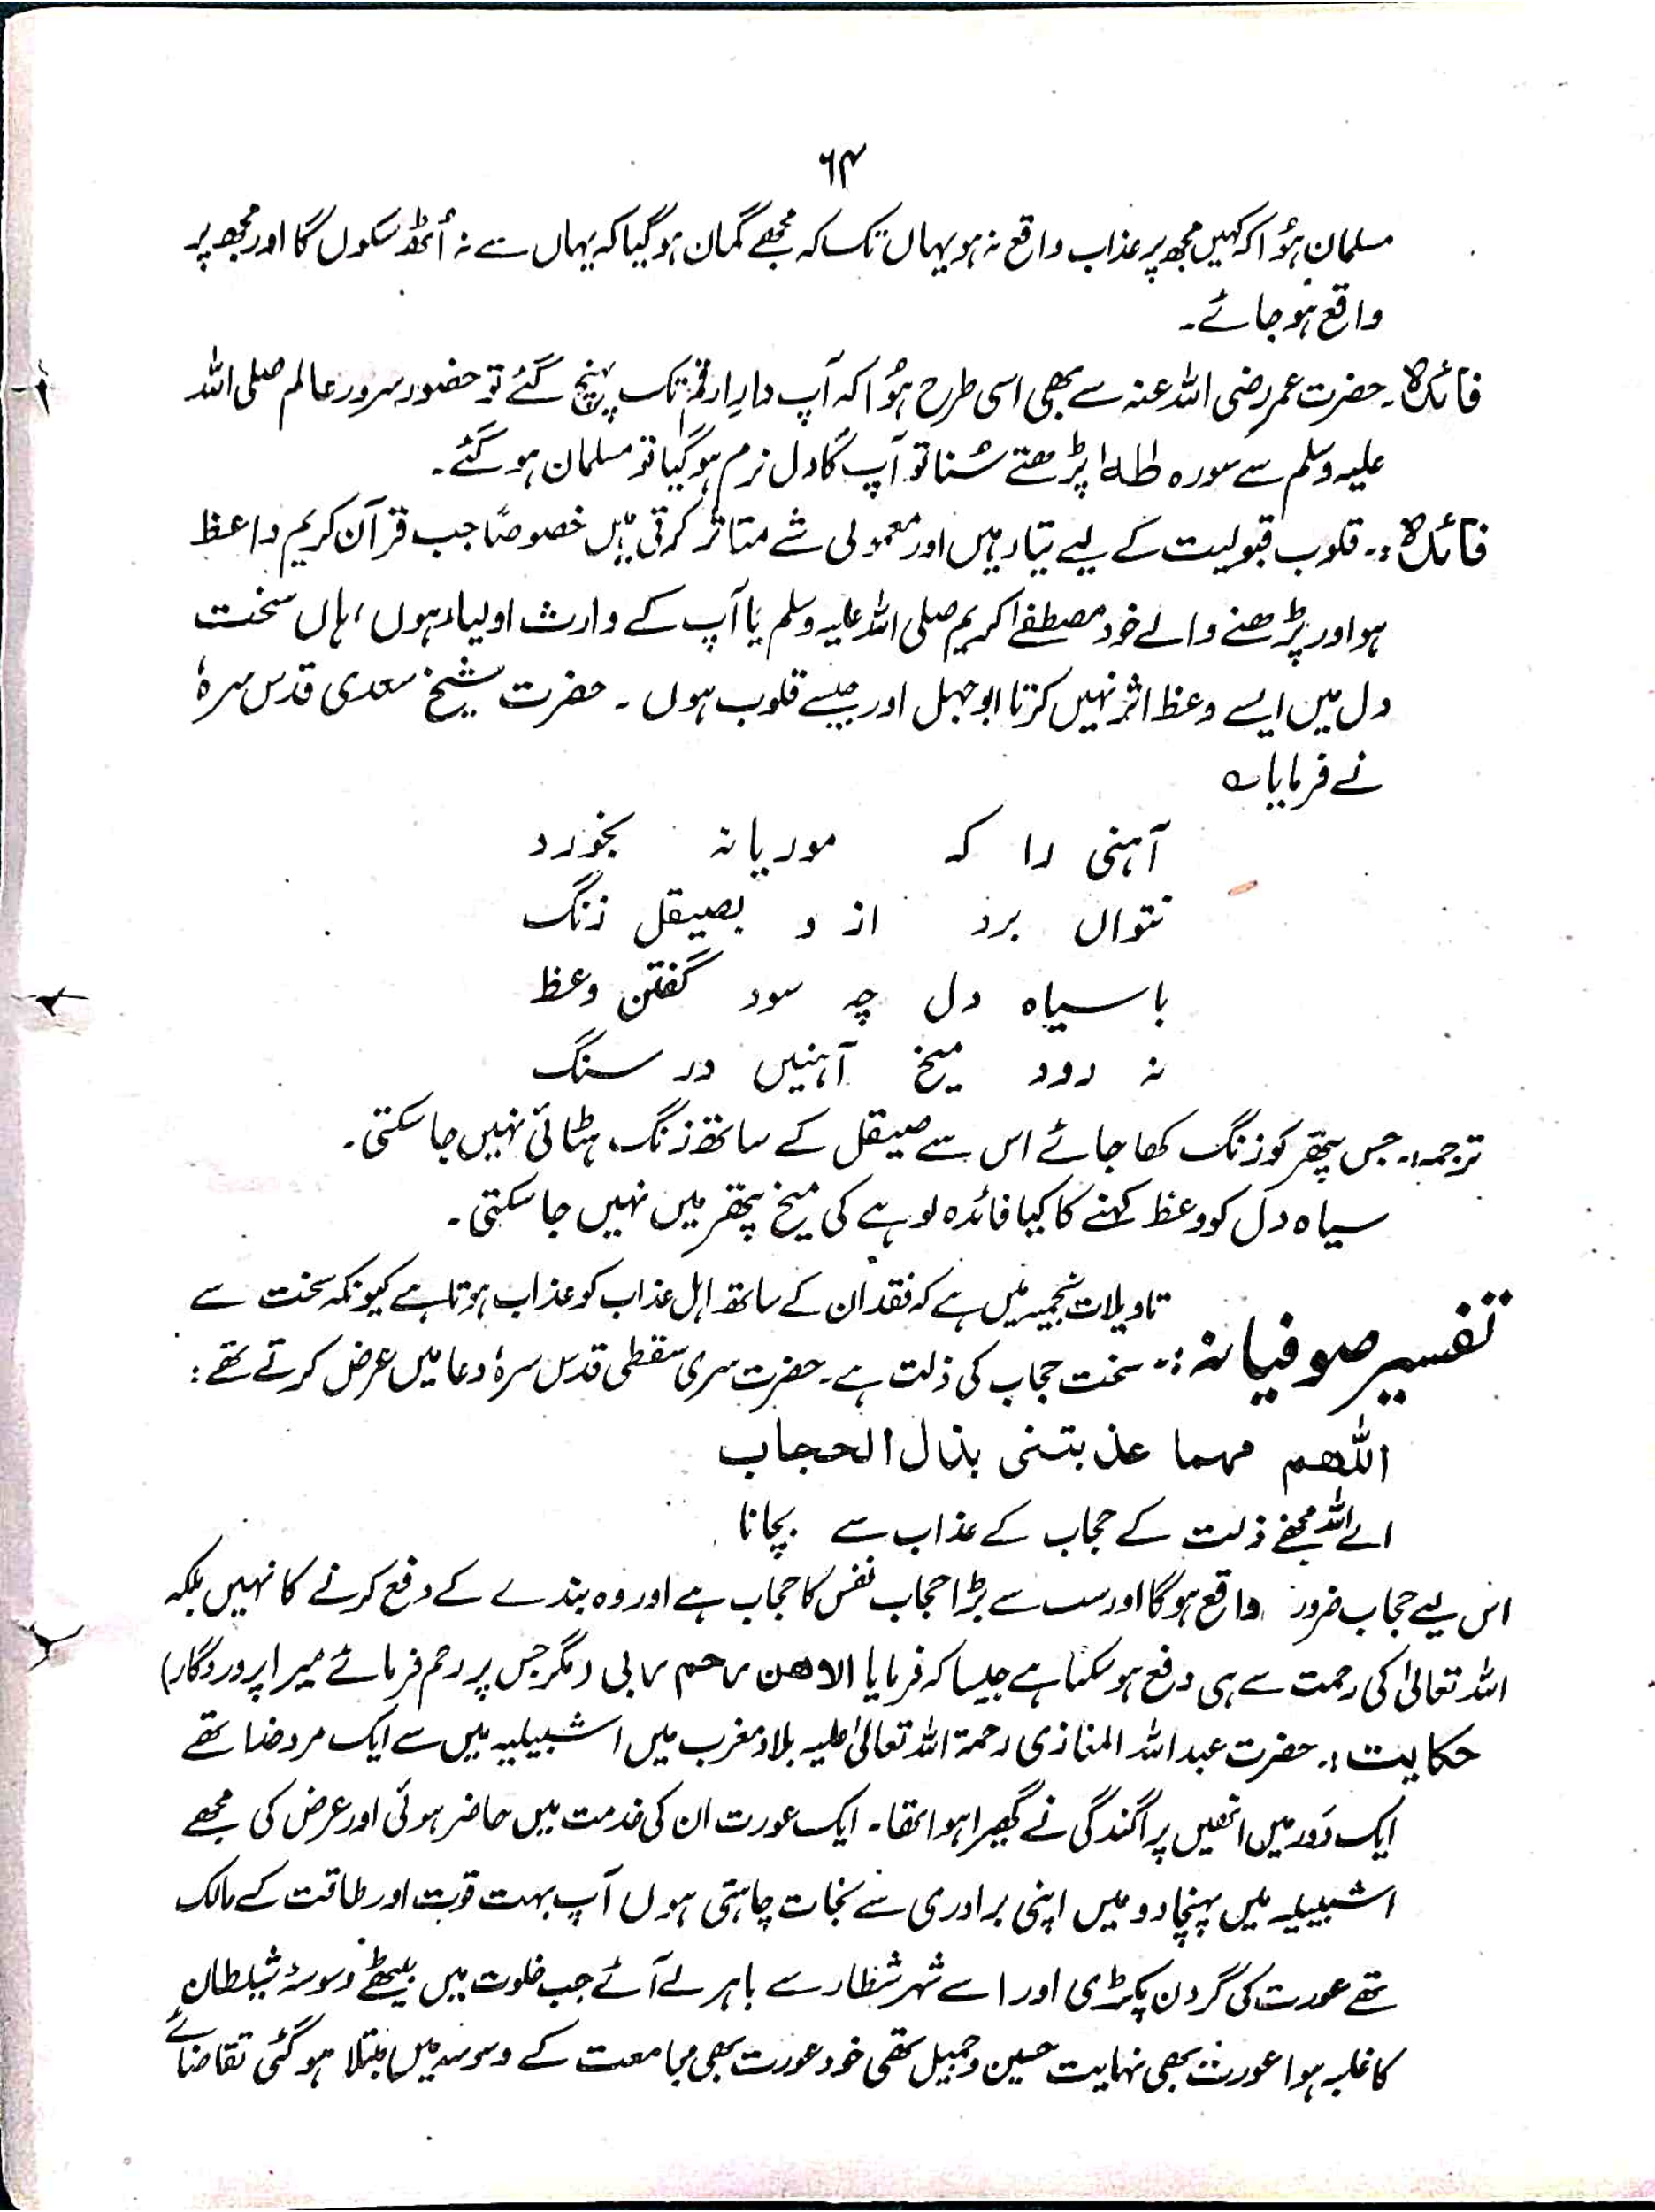 ۶۴
مسلمان ہؤا کہ کہیں مجھ پر عذاب واقع نہ ہو یہاں تک کہ مجھے گمان ہوگیا کہ یہاں سے نہ اُٹھ سکوں گا اور مجھ پر
واقع ہوجائے۔
فائدہ۔ حضرت عمر رضی اللہ عنہ سے بھی اسی طرح ہؤا کہ آپ دارِ ارقم تک پہنچ گئے تو حضور سرور عالم صلی اللہ
علیہ وسلم سے سورہ طٰہٰ پڑھتے سُنا تو آپ کا دل نرم ہوگیا تو مسلمان ہوگئے۔
فائدہ :۔ قلوب قبولیت کے لیے تیار ہیں اور معمولی شے متاثر کرتی ہیں خصوصًا جب قرآن کریم واعظ
ہو اور پڑھنے والے خود مصطفےٰ کریم صلی اللہ علیہ وسلم یا آپ کے وارث اولیاء ہوں، ہاں سخت
دل میں ایسے وعظ اثر نہیں کرتا ابوجہل اور جیسے قلوب ہوں ۔ حضرت شیخ سعدی قدس سرہٗ
نے فرمایا ؎
آہنی را کہ موریانہ بخورد
نتواں برد از و بصیقل زنگ
با سیاہ دل چہ سود گفتن وعظ
نہ رود میخ آہنیں در سنگ
ترجمہ:۔ جس پتھر کو زنگ کھا جائے اس سے صیقل کے ساتھ زنگ ہٹائی نہیں جا سکتی۔
سیاہ دل کو وعظ کہنے کا کیا فائدہ لوہے کی میخ پتھر میں نہیں جا سکتی ۔
تاویلات نجمیہ میں ہے کہ فقدان کے ساتھ اہل عذاب کو عذاب ہوتا ہے کیونکہ سخت سے
تفسیر صوفیانہ :۔ سخت حجاب کی ذلت ہے۔ حضرت سری سقطی قدس سرہٗ دعا میں عرض کرتے تھے :
اللھم مہما عذبتنی بذل الحجاب
اے اللہ مجھے ذلت کے حجاب کے عذاب سے بچانا
اس لیے حجاب ضرور واقع ہوگا اور سب سے بڑا حجاب نفس کا حجاب ہے اور وہ بندے کے دفع کرنے کا نہیں بلکہ
اللہ تعالیٰ کی رحمت سے ہی دفع ہوسکتا ہے جیسا کہ فرمایا الا من رحم ربی (مگر جس پر رحم فرمائے میرا پروردگار)
حکایت :۔ حضرت عبداللہ المغازی رحمۃ اللہ تعالیٰ علیہ بلاد مغرب میں اشبیلیہ میں سے ایک مرد خدا تھے
ایک دَور میں انھیں پراگندگی نے گھیرا ہوا تھا۔ ایک عورت ان کی خدمت میں حاضر ہوئی اور عرض کی مجھے
اشبیلیہ میں پہنچا دو میں اپنی برادری سے نجات چاہتی ہوں آپ بہت قوت اور طاقت کے مالک
تھے عورت کی گردن پکڑی اور اسے شہر شطار سے باہر لے آئے جب خلوت میں بیٹھے وسوسۂ شیطان
کا غلبہ ہوا عورت بھی نہایت حسین و جمیل تھی خود عورت بھی مجامعت کے وسوسہ میں مبتلا ہوگئی تقاضائے